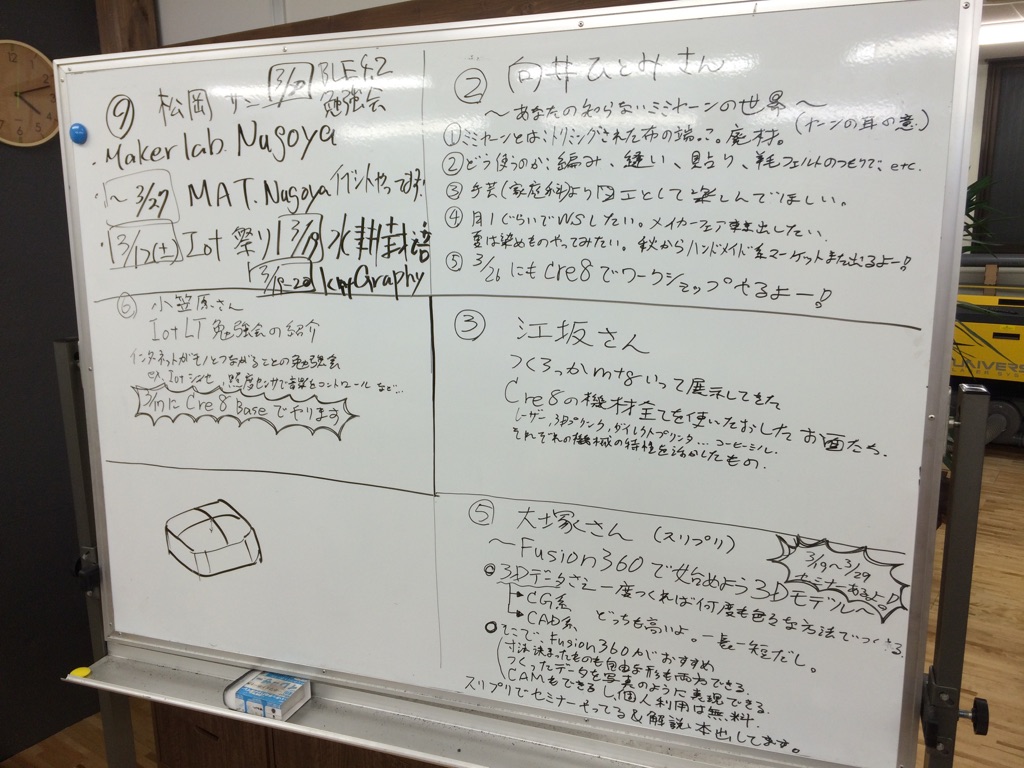 ⑨ 松岡 さん 3/27 BLE4.2
勉強会
・Makerlab. Nagoya
・～3/27 MAT. Nagoya イベントやってます
・3/12(土) Iot 祭り 3/19 水耕栽培
3/19-20 Graphy
⑥ 小笠原さん
IotLT 勉強会の紹介
インターネットがモノとつながることの勉強会
ex. Iot 照度センサで音楽をコントロール など…
3/17に Cre8 Base でやります
② 向井ひとみさん
～あなたの知らないミミヤーンの世界～
(ヤーンの耳の意)
①ミミヤーンとは、トリミングされた布の端っこ。廃材。
②どう使うのか、編み、縫い、貼り、羊毛フェルトのつもりで、etc.
③手芸(家庭科)より図工として楽しんでほしい。
④月1ぐらいでWSしたい。メイカーフェア出したい
夏は染めものやってみたい。秋からハンドメイド系マーケットまた出るよー!
⑤3/26にもcre8でワークショップやるよー!
③ 江坂さん
つくろっか m+gいって展示してきた
Cre8の機材全てを使いたおしたお面たち。
レーザー,3Dプリンタ,ダイレクトプリンタ…コーヒーミル.
それぞれの機械の特性を活かしたもの.
⑤ 大塚さん (スリプリ)
3/19～3/29
セミナーあるよー!
～Fusion360で始めよう3Dモデル～
3Dデータさえ一度つくれば何度も色々な方法でつくれる
→CG系
→CAD系 どっちも高いよ。一長一短だし。
そこで、Fusion360がおすすめ
寸法決まったものも自由な形も両方できる.
つくったデータを写真のように表現できる.
CAMもできるし、個人利用は無料.
スリプリでセミナーやってる&解説本出してます。
UNIVERS